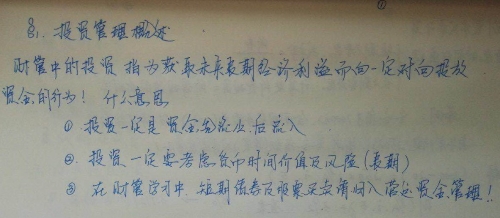 ①
§1. 投资管理概述
财管中的投资 指为获取未来长期经济利益而向一定对向投放
资金的行为！ 什么意思
① 投资一定是资金先流出后流入
②. 投资一定要考虑货币时间价值及风险(长期)
③ 在财管学习中 短期债券及股票买卖请归入营运资金管理!!